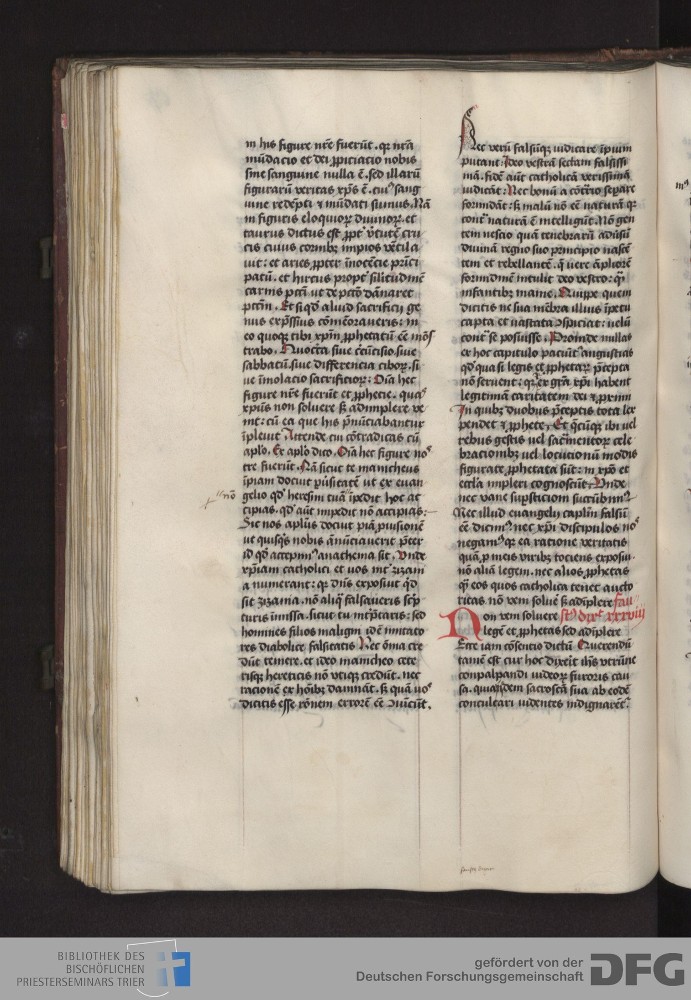 in his figure nr̄e fuerūt. qꝛ nr̄a
mūdacio et dei ꝓpiciatio nobis
sine sanguine nulla ē. sed illarū
figurarū veritas xp̄s ē. cuiꝰ sang
uine redēpti ⁊ mūdati sumus. Nā
in figuris eloquioꝝ diuinoꝝ. et
taurus dictus est ꝓpt̄ v̄tutē cru
cis cuius cornibꝫ impios vētila
uit: et aries ꝓpter īnocēcie prīci
patū. et hircus propt̄ silitudinē
carnis pctī ut de pctō dānaret
pctm̄. Et si qd̄ aliud sacrificij ge
nus exp̄ssius cōmēoraueris: in
eo quoqꝫ tibi xp̄m ꝓphetatū eē mōs
trabo. Quocīra siue cīcūcisio siue
sabbatū. siue differencia ciboꝝ. si
ue īmolacio sacrificioꝝ: Oīa hec
figure nr̄e fuerūt et ꝓphecie. quas
xp̄us non soluere sꝫ adimplere ve
nit: cū ea que his p̄nūciabantur
īpleuit. Attende cui cōtradicas cū
apl̄o. Ex apl̄o dico. Oīa hec figure nos
tre fuerūt. Nā sicut te manicheus
īpiam docuit ꝑuisitatē ut ex euan
gelio qd̄ heresim tuā īpedit hoc ac
cipias. qd̄ aūt impedit nō accipias:
Sic nos apl̄us docuit piā ꝓuisionē
ut quisqꝫ nobis ānūciauerit p̄ter
id qd̄ accepimꝰ anathema sit. Vnde
xp̄iam catholici et uos int̄ zizani
a numerant: qꝛ dn̄s exposuit qd̄
sit zizania. nō aliq̄ falsa ueris scp̄
turis īmissa. sicut tu int̄p̄taris: sed
homines filios maligni id ē imitato
res diabolice falsitatis. Nec oīna cre
dūt temere. et ideo manicheo cete
risqꝫ hereticis nō vtiqꝫ credūt. nec
racionē ex hōibꝫ damnāt. sꝫ quā uos
dicitis esse rōnem errorē eē ꝯuīcūt.
Nec verū falsūqꝫ iudicare īpium
putant: Ideo vestrā sectam falsissi
mā. fidē aūt catholicā verissimā
iudicāt: Nec bonū a cōtrīo separe
formidāt: sꝫ malū nō eē naturā qꝛ
cont̄ naturā ē intelligūt. Nō gen
tem nescio quā tenebrarū adūsū
diuinā regno suo principio nascē
tem et rebellantē. q̄ uere āpliorē
formidinē intulit deo vestro: q̄
infantibꝫ maine. Quippe quem
dicitis ne sua mēbra illius īpetu
capta et uastata ꝯspiciat: uelū
cont̄ se posuisse. Proinde nullas
ex hoc capitulo paciūt̄ angustias
qd̄ quasi legis et ꝓphetaꝝ p̄cepta
nō seruent: qꝛ et ex gr̄a xp̄i habent
legitimā caritatem dei ⁊ ꝓximi
In quibꝫ duobus p̄ceptis tota lex
pendet ⁊ ꝓphete. Et q̄cūqꝫ ibi uel
rebus gestis uel sac̄mentoꝝ cele
bracionibꝫ uel locutionū modis
figurate ꝓphetata sūt: in xp̄o et
eccl̄a impleri cognoscūt. Vnde
nec vane supsticiom sucūbimꝰ.
Nec illud euangelij caplīm falsū
eē dicimꝰ nec xp̄i discipulos nos
negamꝰ qꝛ ea ratione veritatis
quā ꝓ meis viribꝫ tociens exposui.
nō aliā legem. nec alios ꝓphetas
q̄ eos quos catholica tenet aucto
ritas nō vem soluē sꝫ adīplere Fau
Non vem soluere
legē et ꝓphetas sed adīplere
Ecce iam cōsentio dictū. Querendū
tamē est cur hoc dixeit ih̄s vtrūne
conpalpandi iudeoꝝ furoris cau
sa. quia idem sacroscā sua ab eodē
conculcari uidentes indignarēt̄.
BIBLIOTHEK DES
BISCHÖFLICHEN
PRIESTERSEMINARS TRIER
gefördert von der
Deutschen Forschungsgemeinschaft
DFG